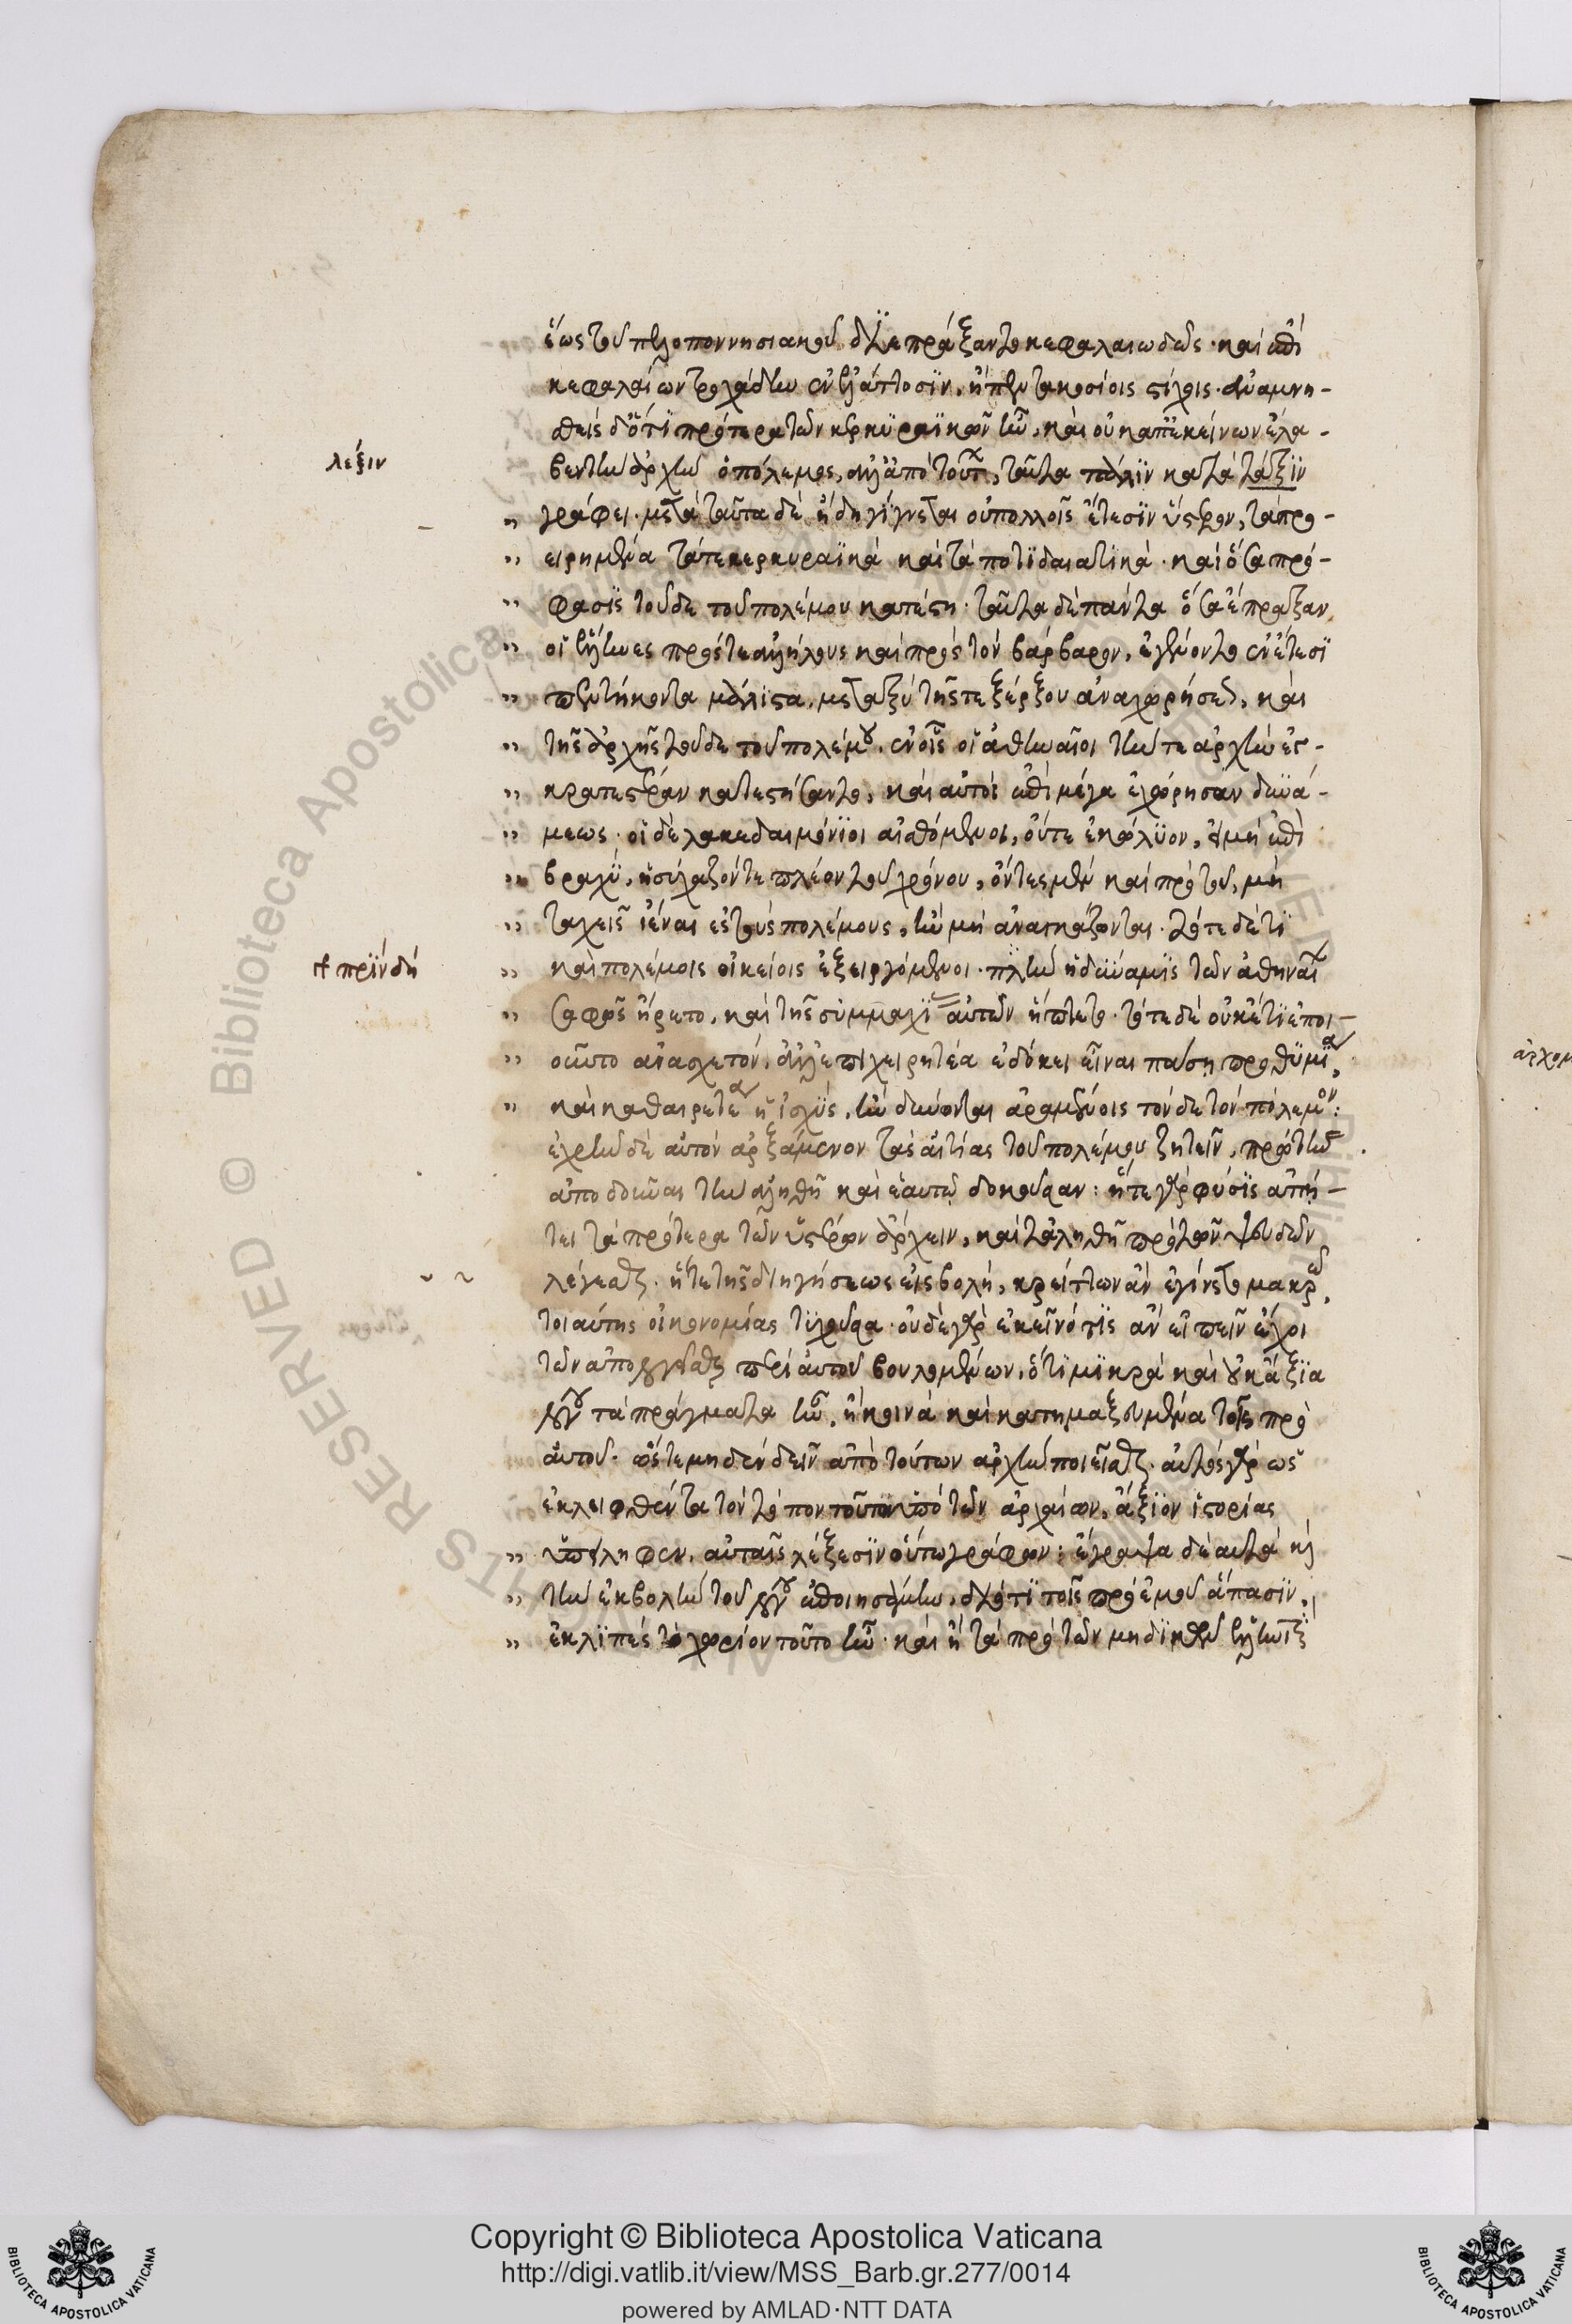 ἕως τοῦ πελοποννησιακοῦ διεπράξαντο κεφαλαιωδῶς· καὶ ἐπὶ
κεφαλαίων τροχάδην ἐν ἐλάττοσιν, ἢ πεντακοσίοις στίχοις· ἀναμνη-
σθεὶς δ' ὅτι πρότερα τῶν κερκυραϊκῶν ἦν, καὶ οὐκ ἀπ' ἐκείνων ἔλα-
λέξιν
βεν τὴν ἀρχὴν ὁ πόλεμος, ἀλλ' ἀπὸ τούτων, ταῦτα πάλιν κατὰ τάξιν
γράφει· μετὰ ταῦτα δὲ ἤδη γίγνεται οὐ πολλοῖς ἔτεσιν ὕστερον, τὰ προ-
ειρημένα τά τε κερκυραϊκὰ καὶ τὰ ποτιδαιατικὰ· καὶ ὅσα πρό-
φασις τοῦδε τοῦ πολέμου κατέστη· ταῦτα δὲ πάντα ὅσα ἔπραξαν
οἱ ἕλληνες πρός τε ἀλλήλους καὶ πρὸς τὸν βάρβαρον, ἐγένοντο ἐν ἔτεσι
πεντήκοντα μάλιστα, μεταξὺ τῆς τε ξέρξου ἀναχωρήσεως, καὶ
τῆς ἀρχῆς τοῦδε τοῦ πολέμου, ἐν οἷς οἱ ἀθηναῖοι τήν τε ἀρχὴν ἐγ-
κρατεστέραν κατεστήσαντο, καὶ αὐτοὶ ἐπὶ μέγα ἐχώρησαν δυνά-
μεως· οἱ δὲ λακεδαιμόνιοι αἰσθόμενοι, οὔτε ἐκώλυον, εἰ μὴ ἐπὶ
βραχὺ, ἡσύχαζόν τε πλέον τοῦ χρόνου, ὄντες μὲν καὶ πρὸ τοῦ, μὴ
ταχεῖς ἰέναι ἐς τοὺς πολέμους, ἢν μὴ ἀναγκάζωνται· τότε δέ τι
πρὶν δὴ
καὶ πολέμοις οἰκείοις ἐξειργόμενοι· πλὴν ἡ δύναμις τῶν ἀθηναίων
σαφῶς ἤρετο, καὶ τῆς συμμαχίας αὐτῶν ἥπτετο· τότε δὲ οὐκέτι ἐποι-
οῦντο ἀνασχετόν, ἀλλ' ἐπιχειρητέα ἐδόκει εἶναι πάσῃ προθυμίᾳ,
καὶ καθαιρετέα ἡ ἰσχύς, ἢν δύνωνται ἀραμένοις τόνδε τὸν πόλεμον:
ἐχρῆν δὲ αὐτὸν ἀρξάμενον τὰς αἰτίας τοῦ πολέμου ζητεῖν, πρώτην
ἀποδοῦναι τὴν ἀληθῆ καὶ ἑαυτῷ δοκοῦσαν: ἥ τε γὰρ φύσις ἀπῄ-
τει τὰ πρότερα τῶν ὑστέρων ἄρχειν, καὶ τἀληθῆ πρὸ τῶν ψευδῶν
λέγεσθαι· ἥ τε τῆς διηγήσεως εἰσβολὴ, κρείττων ἂν ἐγίνετο μακρῷ,
τοιαύτης οἰκονομίας τυχοῦσα· οὐδὲ γὰρ ἐκεῖνό τις ἂν εἰπεῖν ἔχοι
τῶν ἀπολογεῖσθαι περὶ αὐτοῦ βουλομένων, ὅτι μικρὰ καὶ οὐκ ἄξια
λόγου τὰ πράγματα ἦν, ἢ κοινὰ καὶ κατημαξευμένα τοῖς πρὸ
αὐτοῦ· ὥστε μηδὲν δεῖν ἀπὸ τούτων ἀρχὴν ποιεῖσθαι· αὐτὸς γὰρ ὡς
ἐκλειφθέντα τὸν τόπον τοῦτον ὑπὸ τῶν ἀρχαίων, ἄξιον ἱστορίας
ὑπείληφεν, αὐταῖς λέξεσιν οὕτω γράφων: ἔγραψα δὲ αὐτὰ καὶ
τὴν ἐκβολὴν τοῦ λόγου ἐποιησάμην, διότι τοῖς πρὸ ἐμοῦ ἅπασιν,
ἐκλιπὲς τὸ χωρίον τοῦτο ἦν· καὶ ἢ τὰ πρὸ τῶν μηδικῶν ἑλλήνων
ἀρχομ
Copyright © Biblioteca Apostolica Vaticana
http://digi.vatlib.it/view/MSS_Barb.gr.277/0014
powered by AMLAD·NTT DATA